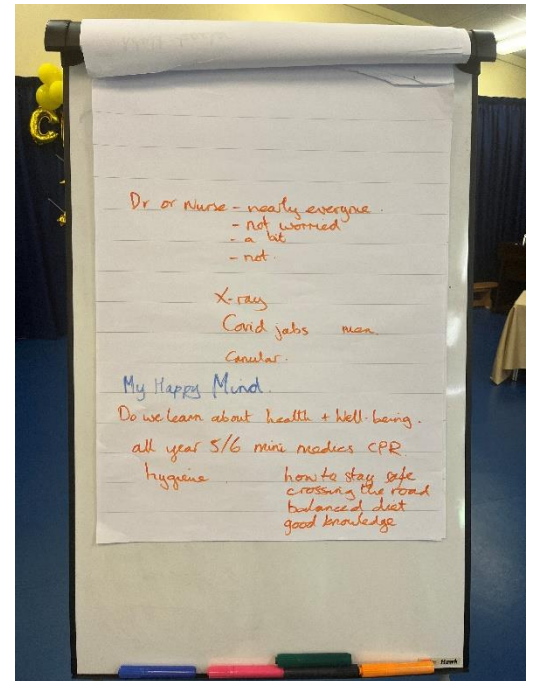 Dr or Nurse - nearly everyone.
- not worried
- a bit
- not.
X-ray
Covid jabs men
Canular.
My Happy Mind.
Do we learn about health + Well-being.
all year 5/6 mini medics CPR
hygiene
how to stay safe
crossing the road
balanced diet
good knowledge
Hawk